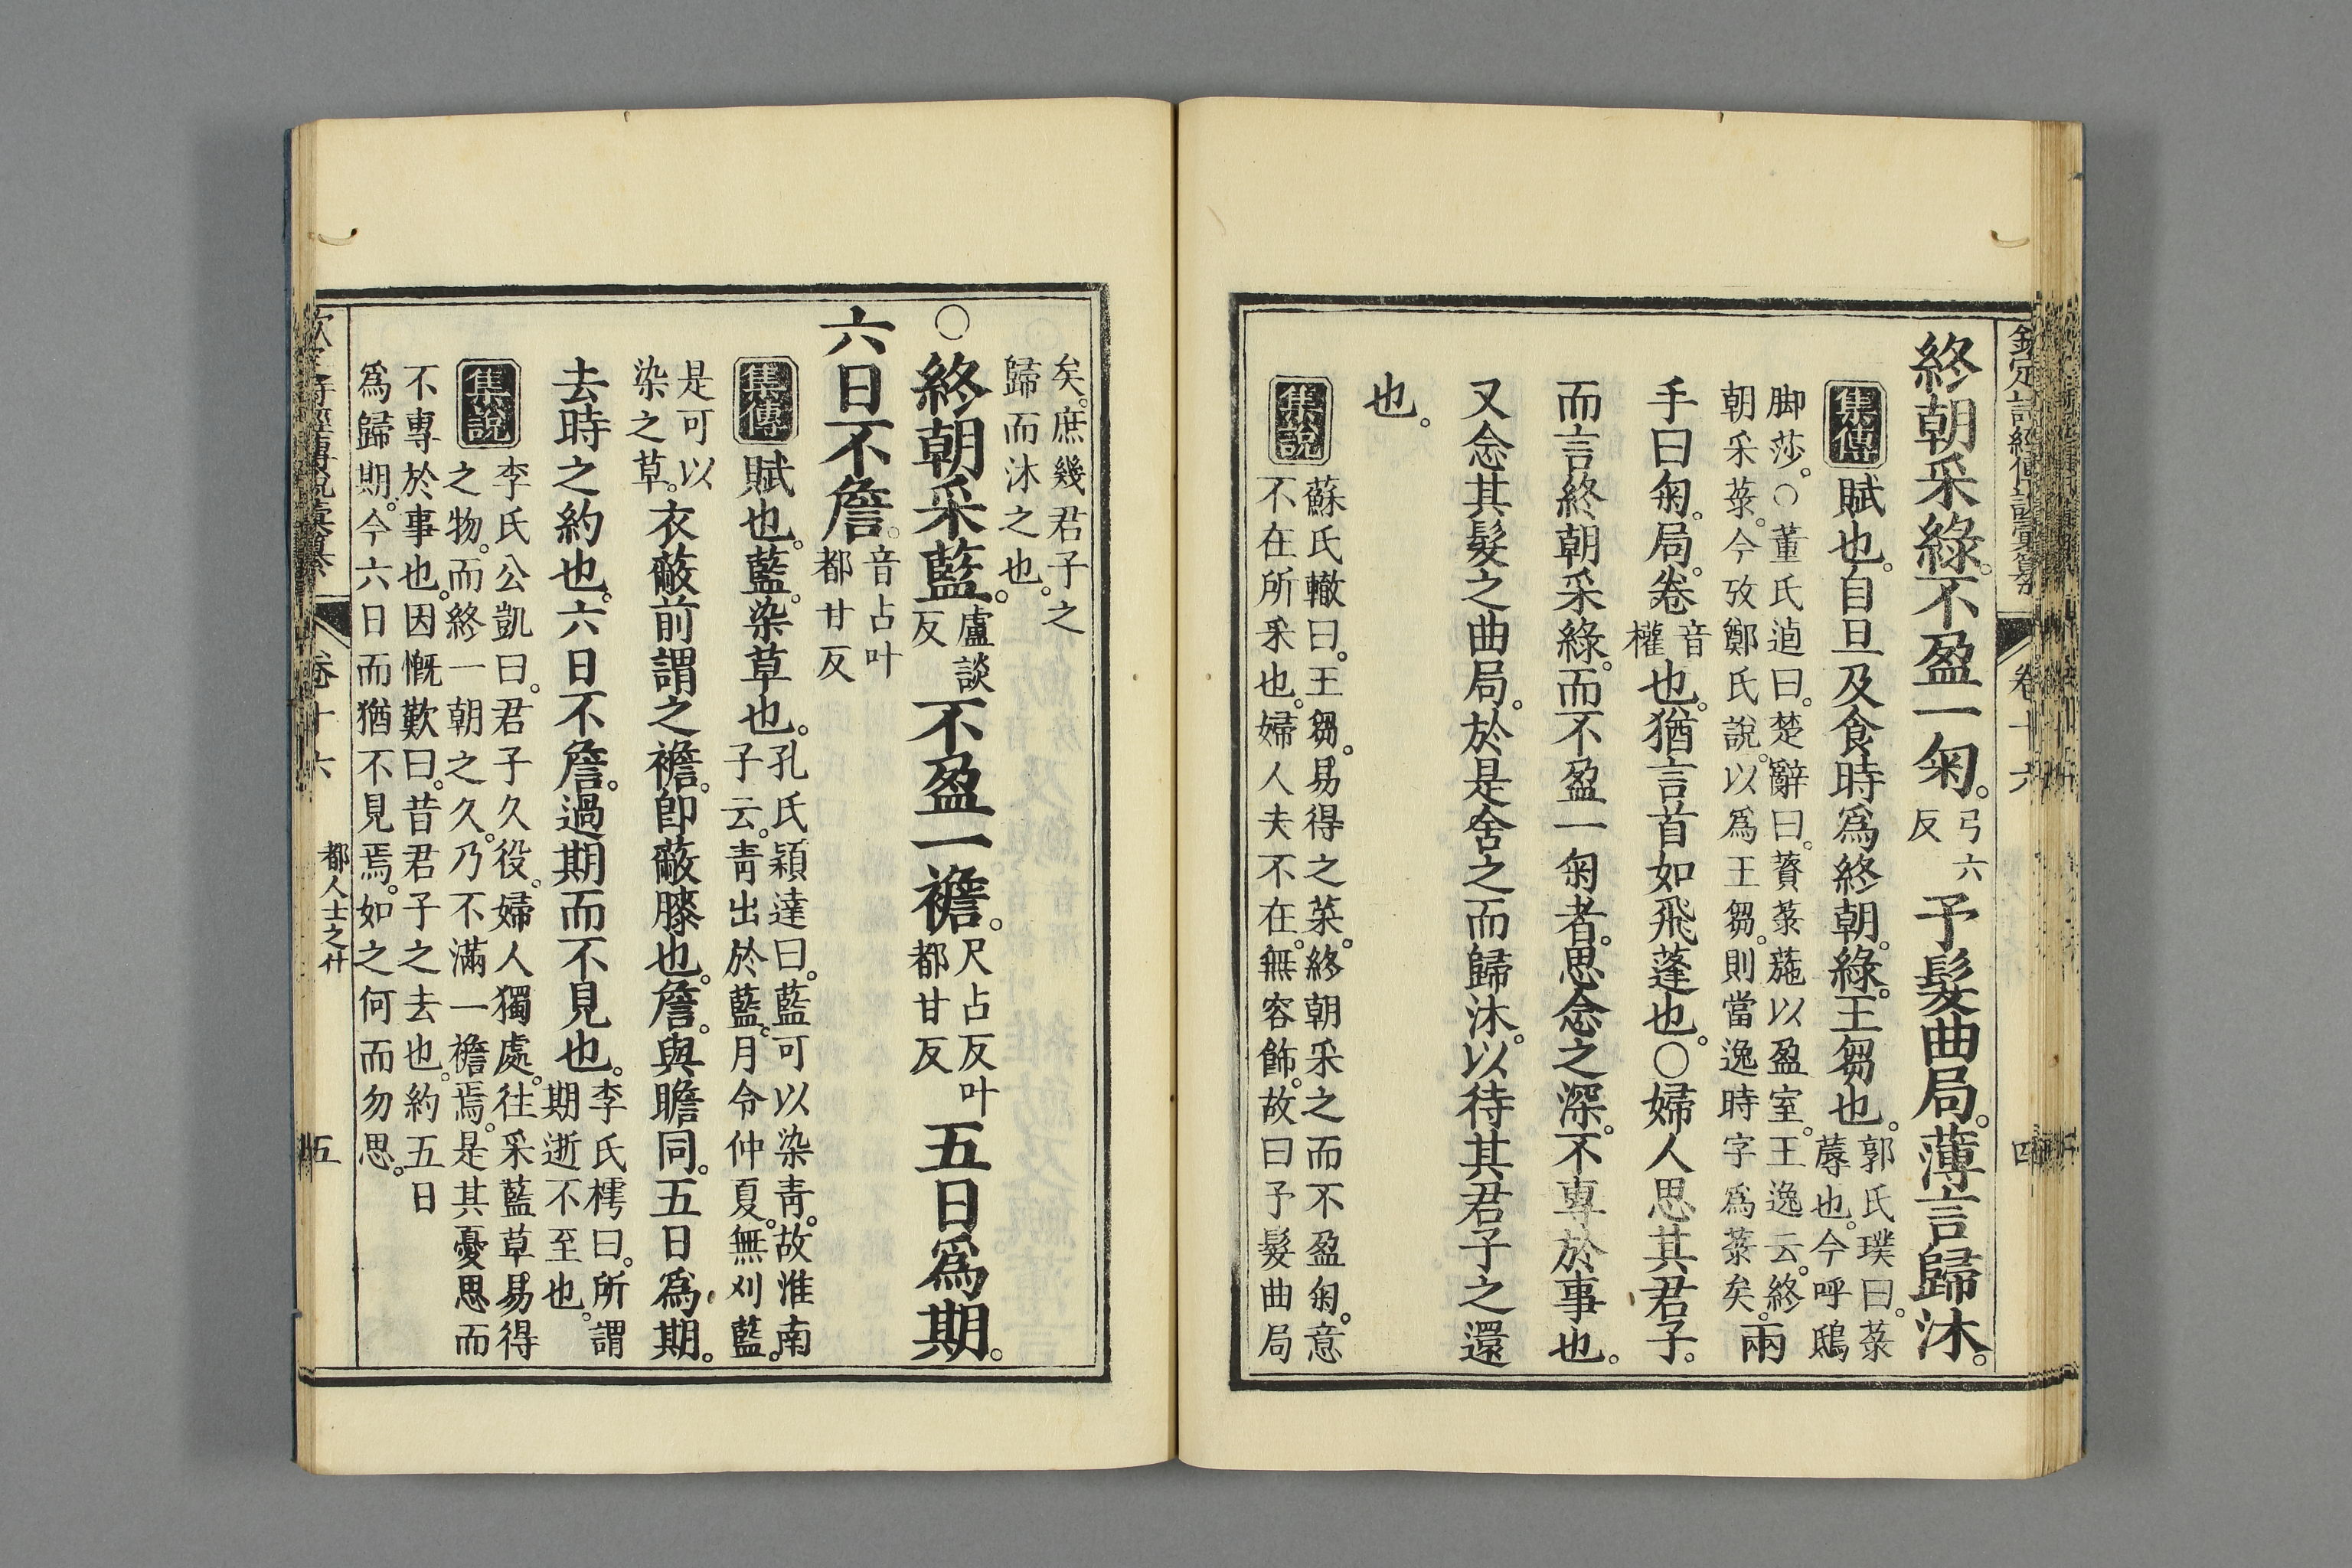 欽定詩經傳說彙纂 卷十六 四
終朝采綠。不盈一匊。弓六反予髮曲局。薄言歸沐。
集傳 賦也。自旦及食時爲終朝。綠。王芻也。郭氏璞曰。菉蓐也。今呼鴟
脚莎。○董氏逌曰。楚辭曰。薋菉葹以盈室。王逸云。終朝采菉。今攷鄭氏說。以爲王芻。則當逸時字爲菉矣。兩
手曰匊。局。卷音權也。猶言首如飛蓬也。○婦人思其君子。
而言終朝采綠。而不盈一匊者。思念之深。不專於事也。
又念其髮之曲局。於是舍之而歸沐。以待其君子之還
也。
集說 蘇氏轍曰。王芻。易得之菜。終朝采之而不盈匊。意
不在所采也。婦人夫不在。無容飾。故曰予髮曲局
矣。庶幾君子之
歸而沐之也。
○終朝采藍。盧談反不盈一襜。尺占反叶都甘反五日爲期。
六日不詹。音占叶都甘反
集傳 賦也。藍。染草也。孔氏穎達曰。藍可以染靑。故淮南子云。靑出於藍。月令仲夏。無刈藍。
是可以染之草。衣蔽前謂之襜。卽蔽膝也。詹。與瞻同。五日爲期。
去時之約也。六日不詹。過期而不見也。李氏樗曰。所謂期逝不至也。
集說 李氏公凱曰。君子久役。婦人獨處。往采藍草。易得
之物。而終一朝之久。乃不滿一襜焉。是其憂思而
不專於事也。因慨歎曰。昔君子之去也。約五日
爲歸期。今六日而猶不見焉。如之何而勿思。
欽定詩經傳說彙纂 卷十六 都人士之什 五